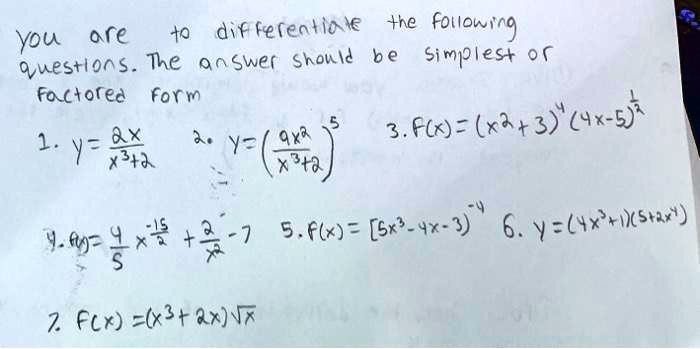 You are to differentiate the following
questions. The answer should be simplest or
factored form
1. y = 2x / x³+2 2. y = (9x² / x³+2)⁵ 3. f(x) = (x²+3)⁴ (4x-5)^½
4. f(x) = 4/5 x^(-15/2) + 2/x² - 7 5. f(x) = [5x³-4x-3)⁻⁴ 6. y = (4x³+1)(5+2x⁴)
7. f(x) = (x³+2x)√x